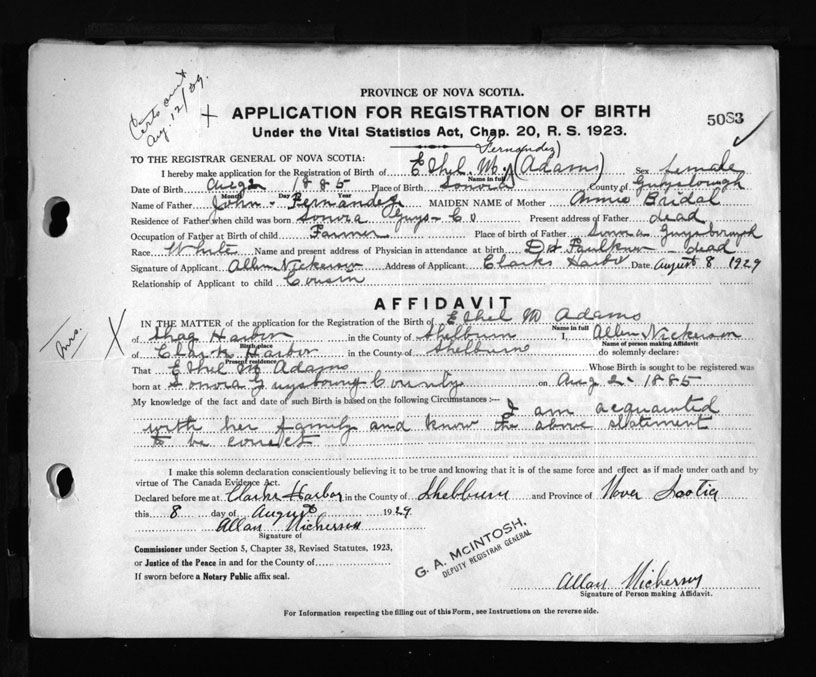 Certs sent
Aug. 12/29.
X
PROVINCE OF NOVA SCOTIA.
APPLICATION FOR REGISTRATION OF BIRTH
Under the Vital Statistics Act, Chap. 20, R. S. 1923.
5083
Fernandez
TO THE REGISTRAR GENERAL OF NOVA SCOTIA:
I hereby make application for the Registration of Birth of Ethel. M. (Adams) Sex female
Name in full
Date of Birth Aug 2 1885 Place of Birth Sonora County of Guysbough
Month Day Year
Name of Father John. Fernandez MAIDEN NAME of Mother Annie Bridal
Residence of Father when child was born Sonora Guys- Co Present address of Father dead
Occupation of Father at Birth of child Farmer Place of birth of Father Guysborough
Race White Name and present address of Physician in attendance at birth Dr Faulkner dead
Signature of Applicant Allen Nickerson Address of Applicant Clarks Harbor Date August 8 1929
Relationship of Applicant to child Cousin
AFFIDAVIT
Mrs. X
IN THE MATTER of the application for the Registration of the Birth of Ethel M Adams
Name in full
of Shag Harbor in the County of Shelburn I, Allen Nickerson
Birth place Name of person making Affidavit
of Clark Harbor in the County of Shelburn do solemnly declare:
Present residence
That Ethel M Adams Whose Birth is sought to be registered was
born at Sonora Guysboung County on Aug 2- 1885
My knowledge of the fact and date of such Birth is based on the following Circumstances :— I am acquainted
with her family and know the above statement
to be correct
I make this solemn declaration conscientiously believing it to be true and knowing that it is of the same force and effect as if made under oath and by
virtue of The Canada Evidence Act.
Declared before me at Clarks Harbor in the County of Shelburn and Province of Nova Scotia
this 8 day of August 1929
Allan Nickerson
Signature of
Commissioner under Section 5, Chapter 38, Revised Statutes, 1923,
or Justice of the Peace in and for the County of
If sworn before a Notary Public affix seal.
G. A. McINTOSH,
DEPUTY REGISTRAR GENERAL
Allan Nickerson
Signature of Person making Affidavit.
For Information respecting the filling out of this Form, see Instructions on the reverse side.